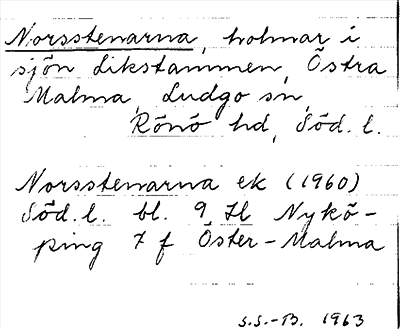 Norsstenarna, holmar i
sjön Likstammen, Östra
Malma, Ludgo sn,
Rönö hd, Söd. l.
Norsstenarna ek (1960)
Söd. l. bl. 9 Il Nykö-
ping 7 f Öster-Malma
S.S.-B. 1963